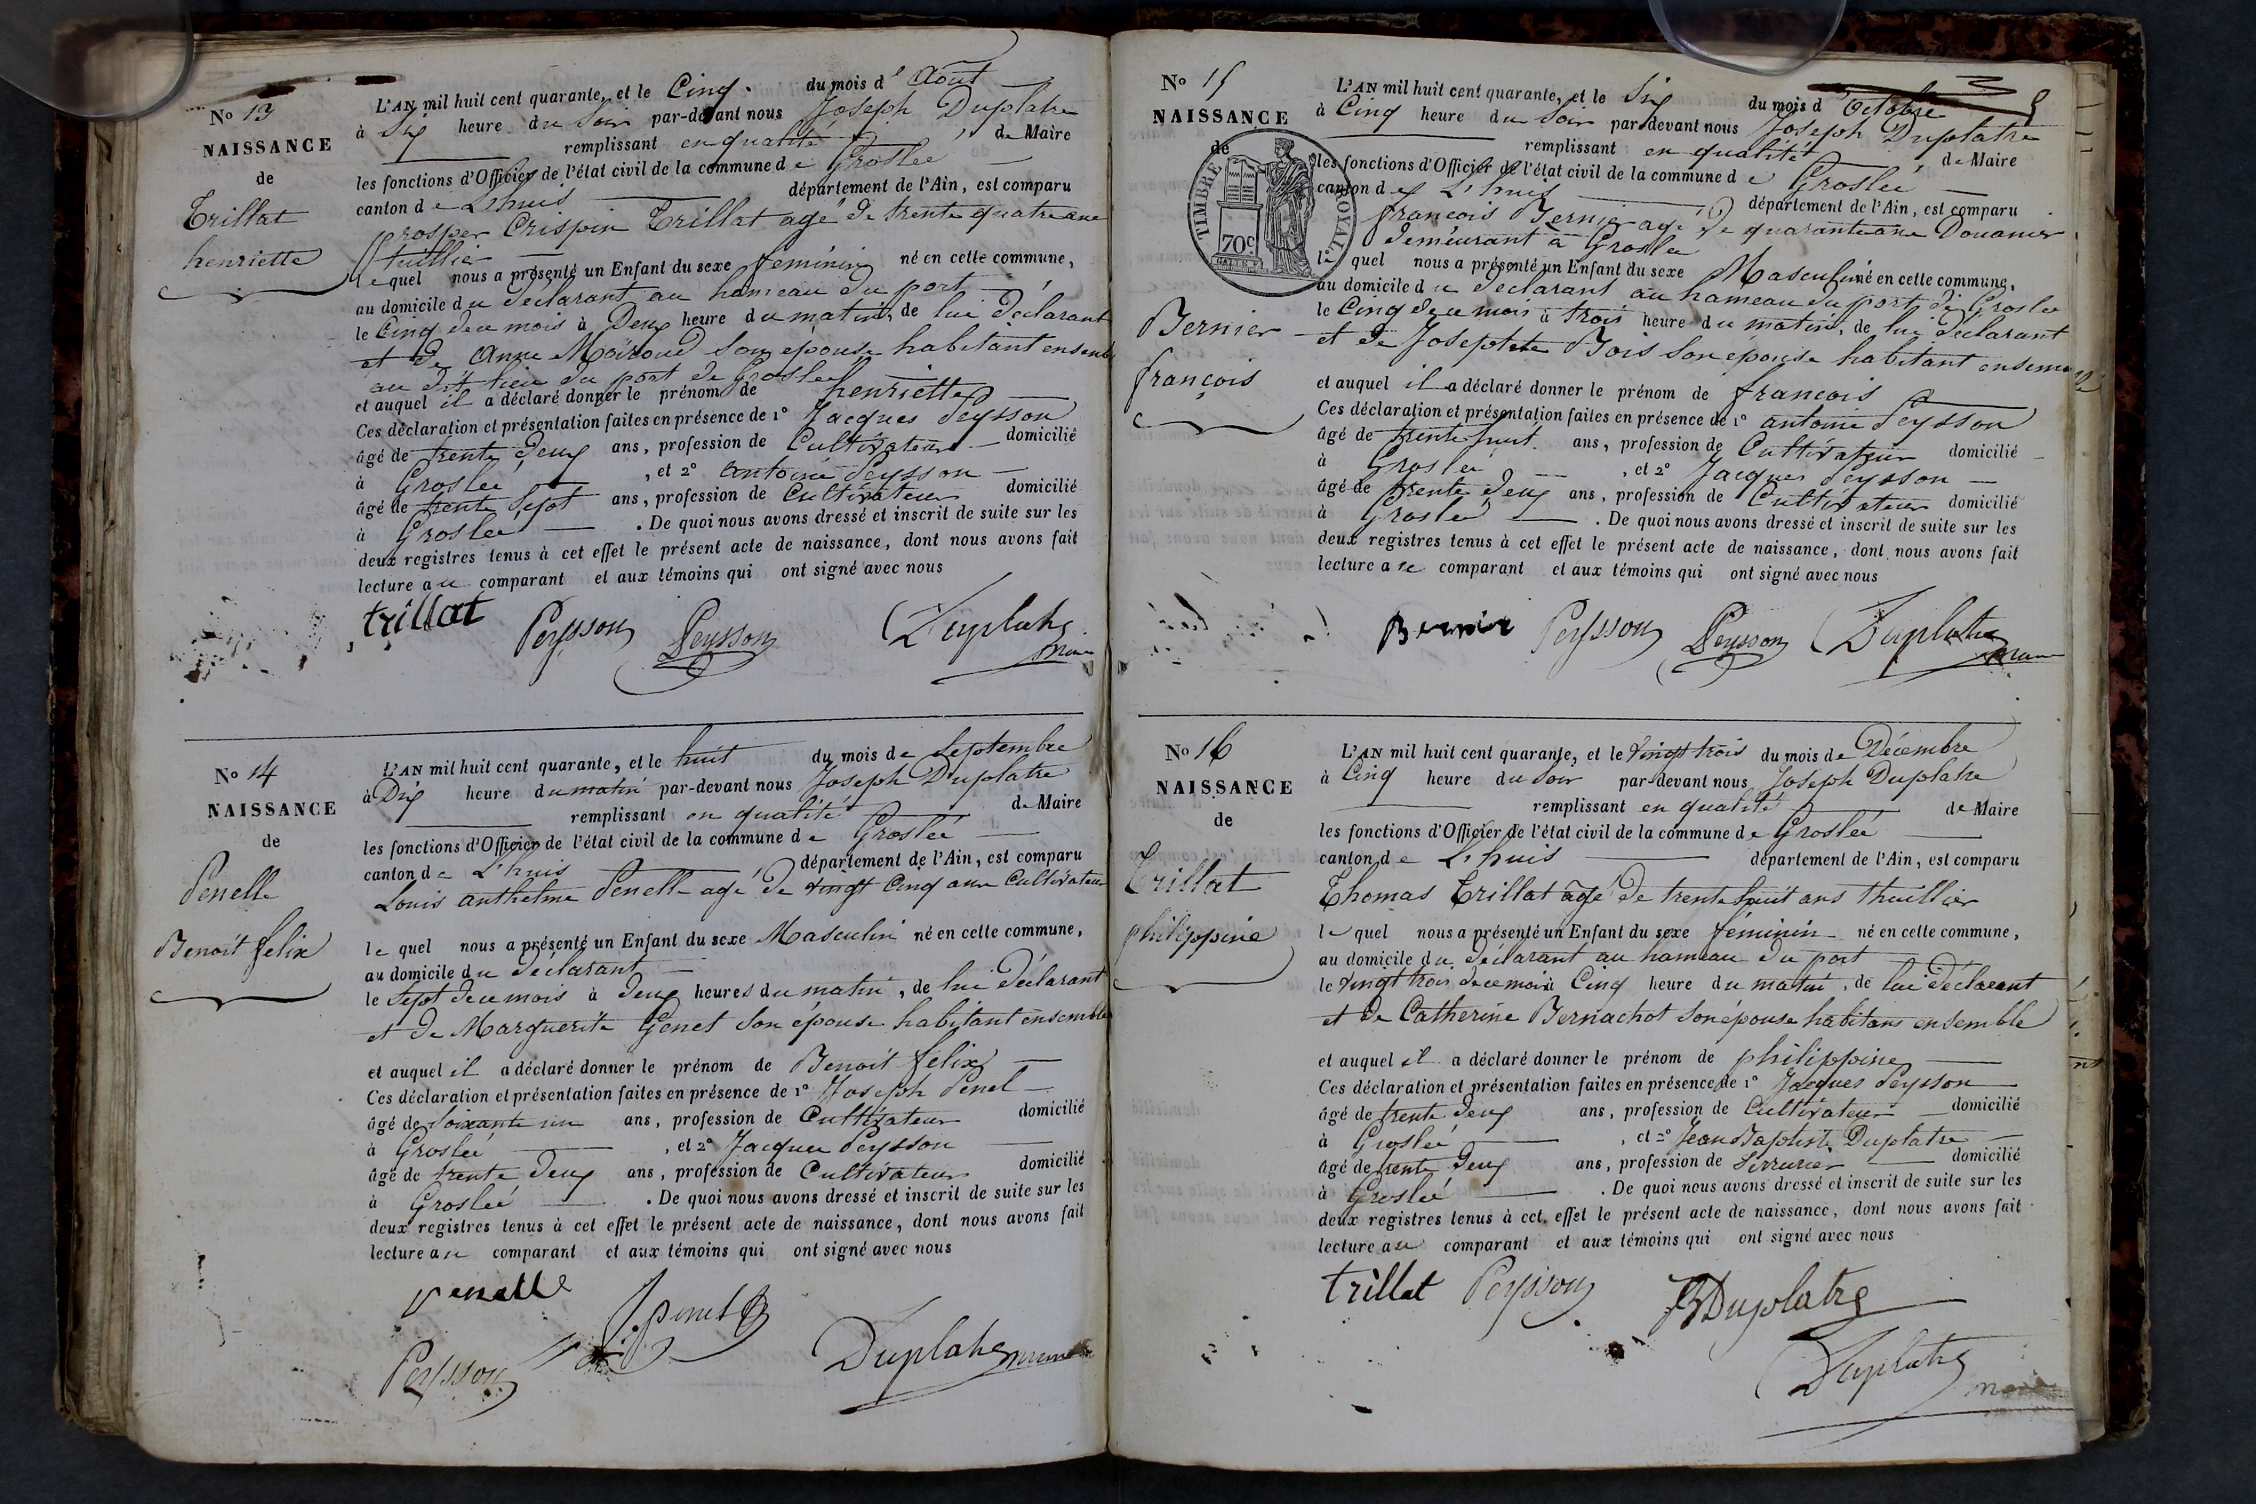 No 13
NAISSANCE
de
Trillat
henriette
L'AN mil huit cent quarante, et le Cinq du mois d' Août
à Six heure du Soir par-devant nous Joseph Duplatre
remplissant en qualité de Maire
les fonctions d'Officier de l'état civil de la commune de Groslée
canton de L'huis département de l'Ain, est comparu
prosper Crispin Trillat agé de trente quatre ans
thuillier
le quel nous a présenté un Enfant du sexe féminin né en cette commune,
au domicile du déclarant au hameau du port
le Cinq de ce mois à Deux heure du matin, de lui déclarant
et de Anne Moiroud son épouse habitant ensemble
au dit lieu du port de Groslée
et auquel il a déclaré donner le prénom de henriette
Ces déclaration et présentation faites en présence de 1° Jacques Peysson
âgé de trente deux ans, profession de Cultivateur domicilié
à Groslée, et 2° antoine Peysson
âgé de trente Sept ans, profession de Cultivateur domicilié
à Groslée. De quoi nous avons dressé et inscrit de suite sur les
deux registres tenus à cet effet le présent acte de naissance, dont nous avons fait
lecture au comparant et aux témoins qui ont signé avec nous
trillat Peysson Peysson Duplatre
maire
No 14
NAISSANCE
de
Penelle
Benoit felix
L'AN mil huit cent quarante, et le huit du mois de Septembre
à Dix heure du matin par-devant nous Joseph Duplatre
remplissant en qualité de Maire
les fonctions d'Officier de l'état civil de la commune de Groslée
canton de L'huis département de l'Ain, est comparu
Louis anthelme Penelle agé de vingt Cinq ans Cultivateur
le quel nous a présenté un Enfant du sexe Masculin né en cette commune,
au domicile du Déclarant
le Sept de ce mois à deux heures du matin, de lui Déclarant
et de Marguerite Genet son épouse habitant ensemble
et auquel il a déclaré donner le prénom de Benoit felix
Ces déclaration et présentation faites en présence de 1° Joseph Penel
âgé de Soixante un ans, profession de Cultivateur domicilié
à Groslée, et 2° Jacques Peysson
âgé de trente Deux ans, profession de Cultivateur domicilié
à Groslée. De quoi nous avons dressé et inscrit de suite sur les
deux registres tenus à cet effet le présent acte de naissance, dont nous avons fait
lecture au comparant et aux témoins qui ont signé avec nous
penelle
J. penel
Peysson Duplatre maire
No 15
NAISSANCE
de
TIMBRE ROYAL
70c
Bernier
françois
L'AN mil huit cent quarante, et le Six du mois d'Octobre
à Cinq heure du Soir par-devant nous Joseph Duplatre
remplissant en qualité de Maire
les fonctions d'Officier de l'état civil de la commune de Groslée
canton de L'huis département de l'Ain, est comparu
françois Bernier agé de quarante ans Douanier
demeurant à Groslée
le quel nous a présenté un Enfant du sexe Masculin né en cette commune,
au domicile du déclarant au hameau du port de Groslée
le Cinq de ce mois à trois heure du matin, de lui déclarant
et de Josephte Bois son épouse habitant ensemble
et auquel il a déclaré donner le prénom de françois
Ces déclaration et présentation faites en présence de 1° antoine Peysson
âgé de trente huit ans, profession de Cultivateur domicilié
à Groslée, et 2° Jacques Peysson
âgé de trente deux ans, profession de Cultivateur domicilié
à Groslée. De quoi nous avons dressé et inscrit de suite sur les
deux registres tenus à cet effet le présent acte de naissance, dont nous avons fait
lecture au comparant et aux témoins qui ont signé avec nous
Bernier Peysson Peysson Duplatre
maire
No 16
NAISSANCE
de
Trillat
philippine
L'AN mil huit cent quarante, et le vingt trois du mois de Décembre
à Cinq heure du Soir par-devant nous Joseph Duplatre
remplissant en qualité de Maire
les fonctions d'Officier de l'état civil de la commune de Groslée
canton de L'huis département de l'Ain, est comparu
Thomas Trillat agé de trente huit ans thuillier
le quel nous a présenté un Enfant du sexe féminin né en cette commune,
au domicile du déclarant au hameau du port
le vingt trois de ce mois à Cinq heure du matin, de lui Déclarant
et de Catherine Bernachot son épouse habitans ensemble
et auquel il a déclaré donner le prénom de philippine
Ces déclaration et présentation faites en présence de 1° Jacques Peysson
âgé de trente deux ans, profession de Cultivateur domicilié
à Groslée, et 2° Jean Baptiste Duplatre
âgé de trente deux ans, profession de Serrurier domicilié
à Groslée. De quoi nous avons dressé et inscrit de suite sur les
deux registres tenus à cet effet le présent acte de naissance, dont nous avons fait
lecture au comparant et aux témoins qui ont signé avec nous
trillat Peysson JBDuplatre
Duplatre
maire